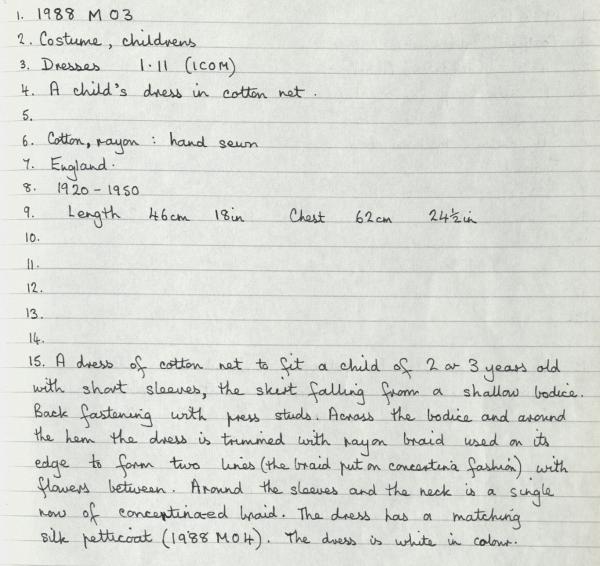 1. 1988 M 03
2. Costume, childrens
3. Dresses 1.11 (ICOM)
4. A child's dress in cotton net.
5.
6. Cotton, rayon : hand sewn
7. England.
8. 1920 - 1950
9. Length 46cm 18in Chest 62cm 24½in
10.
11.
12.
13.
14.
15. A dress of cotton net to fit a child of 2 or 3 years old
with short sleeves, the skirt falling from a shallow bodice.
Back fastening with press studs. Across the bodice and around
the hem the dress is trimmed with rayon braid used on its
edge to form two lines (the braid put on concertina fashion) with
flowers between. Around the sleeves and the neck is a single
row of concertinaed braid. The dress has a matching
silk petticoat (1988 M04). The dress is white in colour.